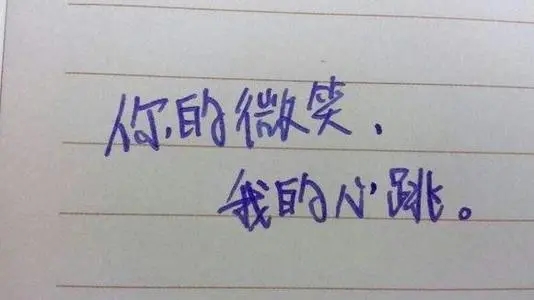 你的微笑、
我的心跳。